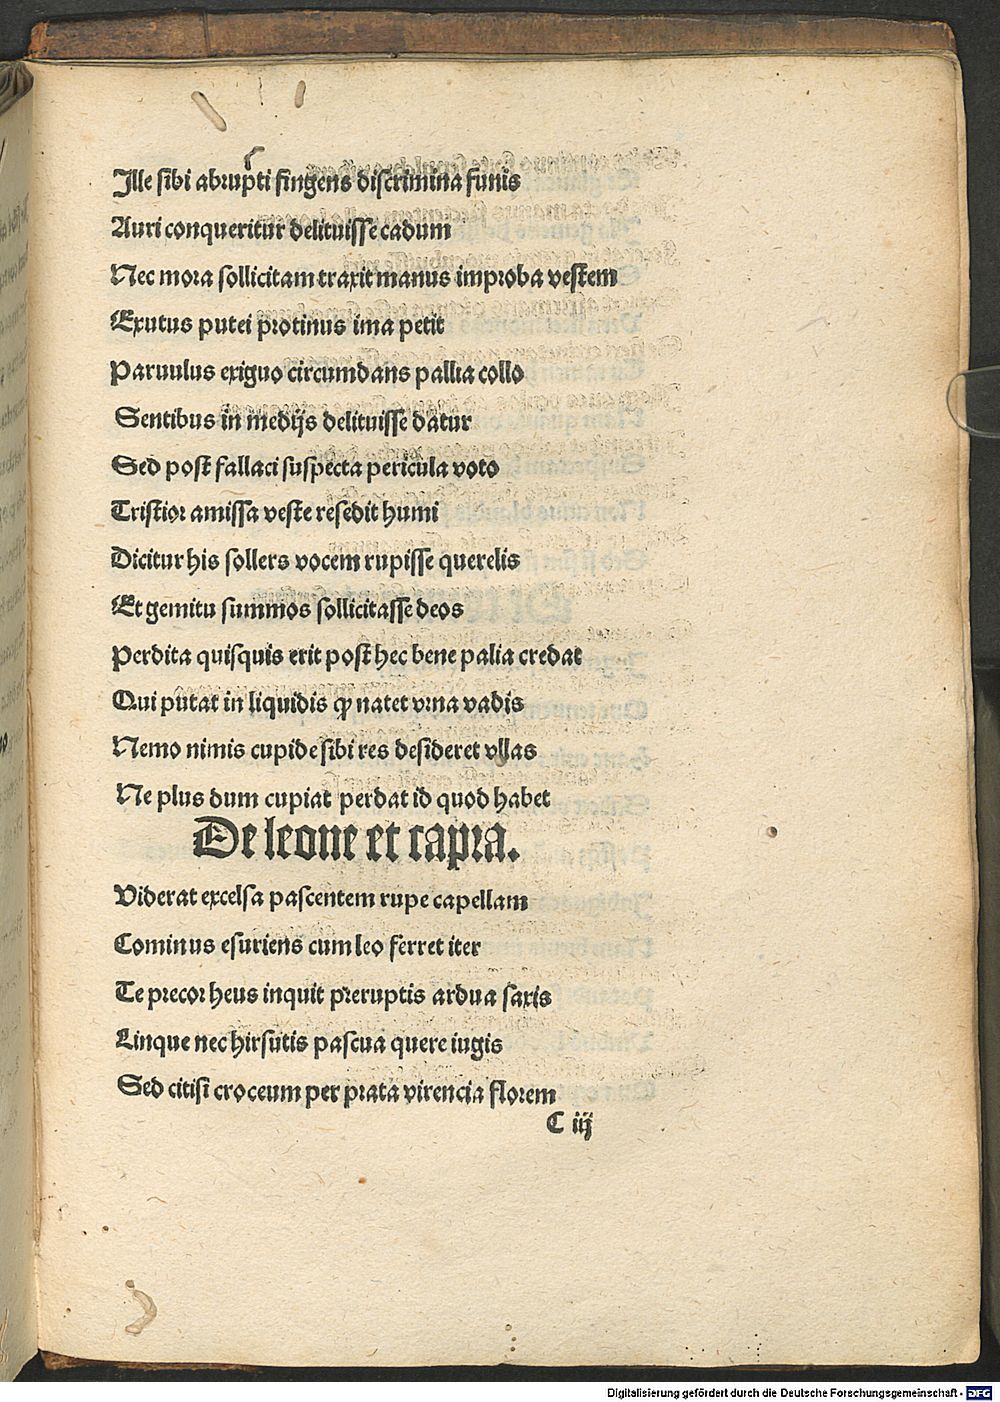 Ille sibi abrupti fingens discrimina funis
Auri conqueritur delituisse cadum
Nec mora sollicitam traxit manus improba vestem
Exutus putei protinus ima petit
Paruulus exiguo circumdans pallia collo
Sentibus in medijs delituisse datur
Sed post fallaci suspecta pericula voto
Tristior amissa veste resedit humi
Dicitur his sollers vocem rupisse querelis
Et gemitu summos sollicitasse deos
Perdita quisquis erit post hec bene palia credat
Qui putat in liquidis ꝙ natet vrna vadis
Nemo nimis cupide sibi res desideret vllas
Ne plus dum cupiat perdat id quod habet
De leone et capra.
Viderat excelsa pascentem rupe capellam
Cominus esuriens cum leo ferret iter
Te precor heus inquit preruptis ardua saxis
Linque nec hirsutis pascua quere iugis
Sed citisi croceum per prata virencia florem
C iij
Digitalisierung gefördert durch die Deutsche Forschungsgemeinschaft - DFG